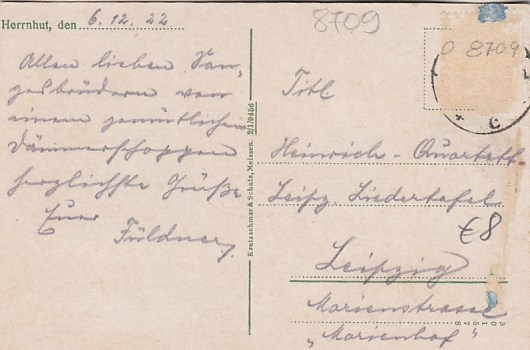 Herrnhut, den 6.12.22
Allen lieben San-
gesbrüdern von
einem gemütlichen
Dämmerschoppen
herzlichste Grüße
Euer
Füldner
Kretzschmar & Schatz, Meissen. 211/9456
8709
0 8709
C
Titl
Heinrich-Quartett
Leipz. Liedertafel
€8
Leipzig
Marienstrasse
"Marienhof"